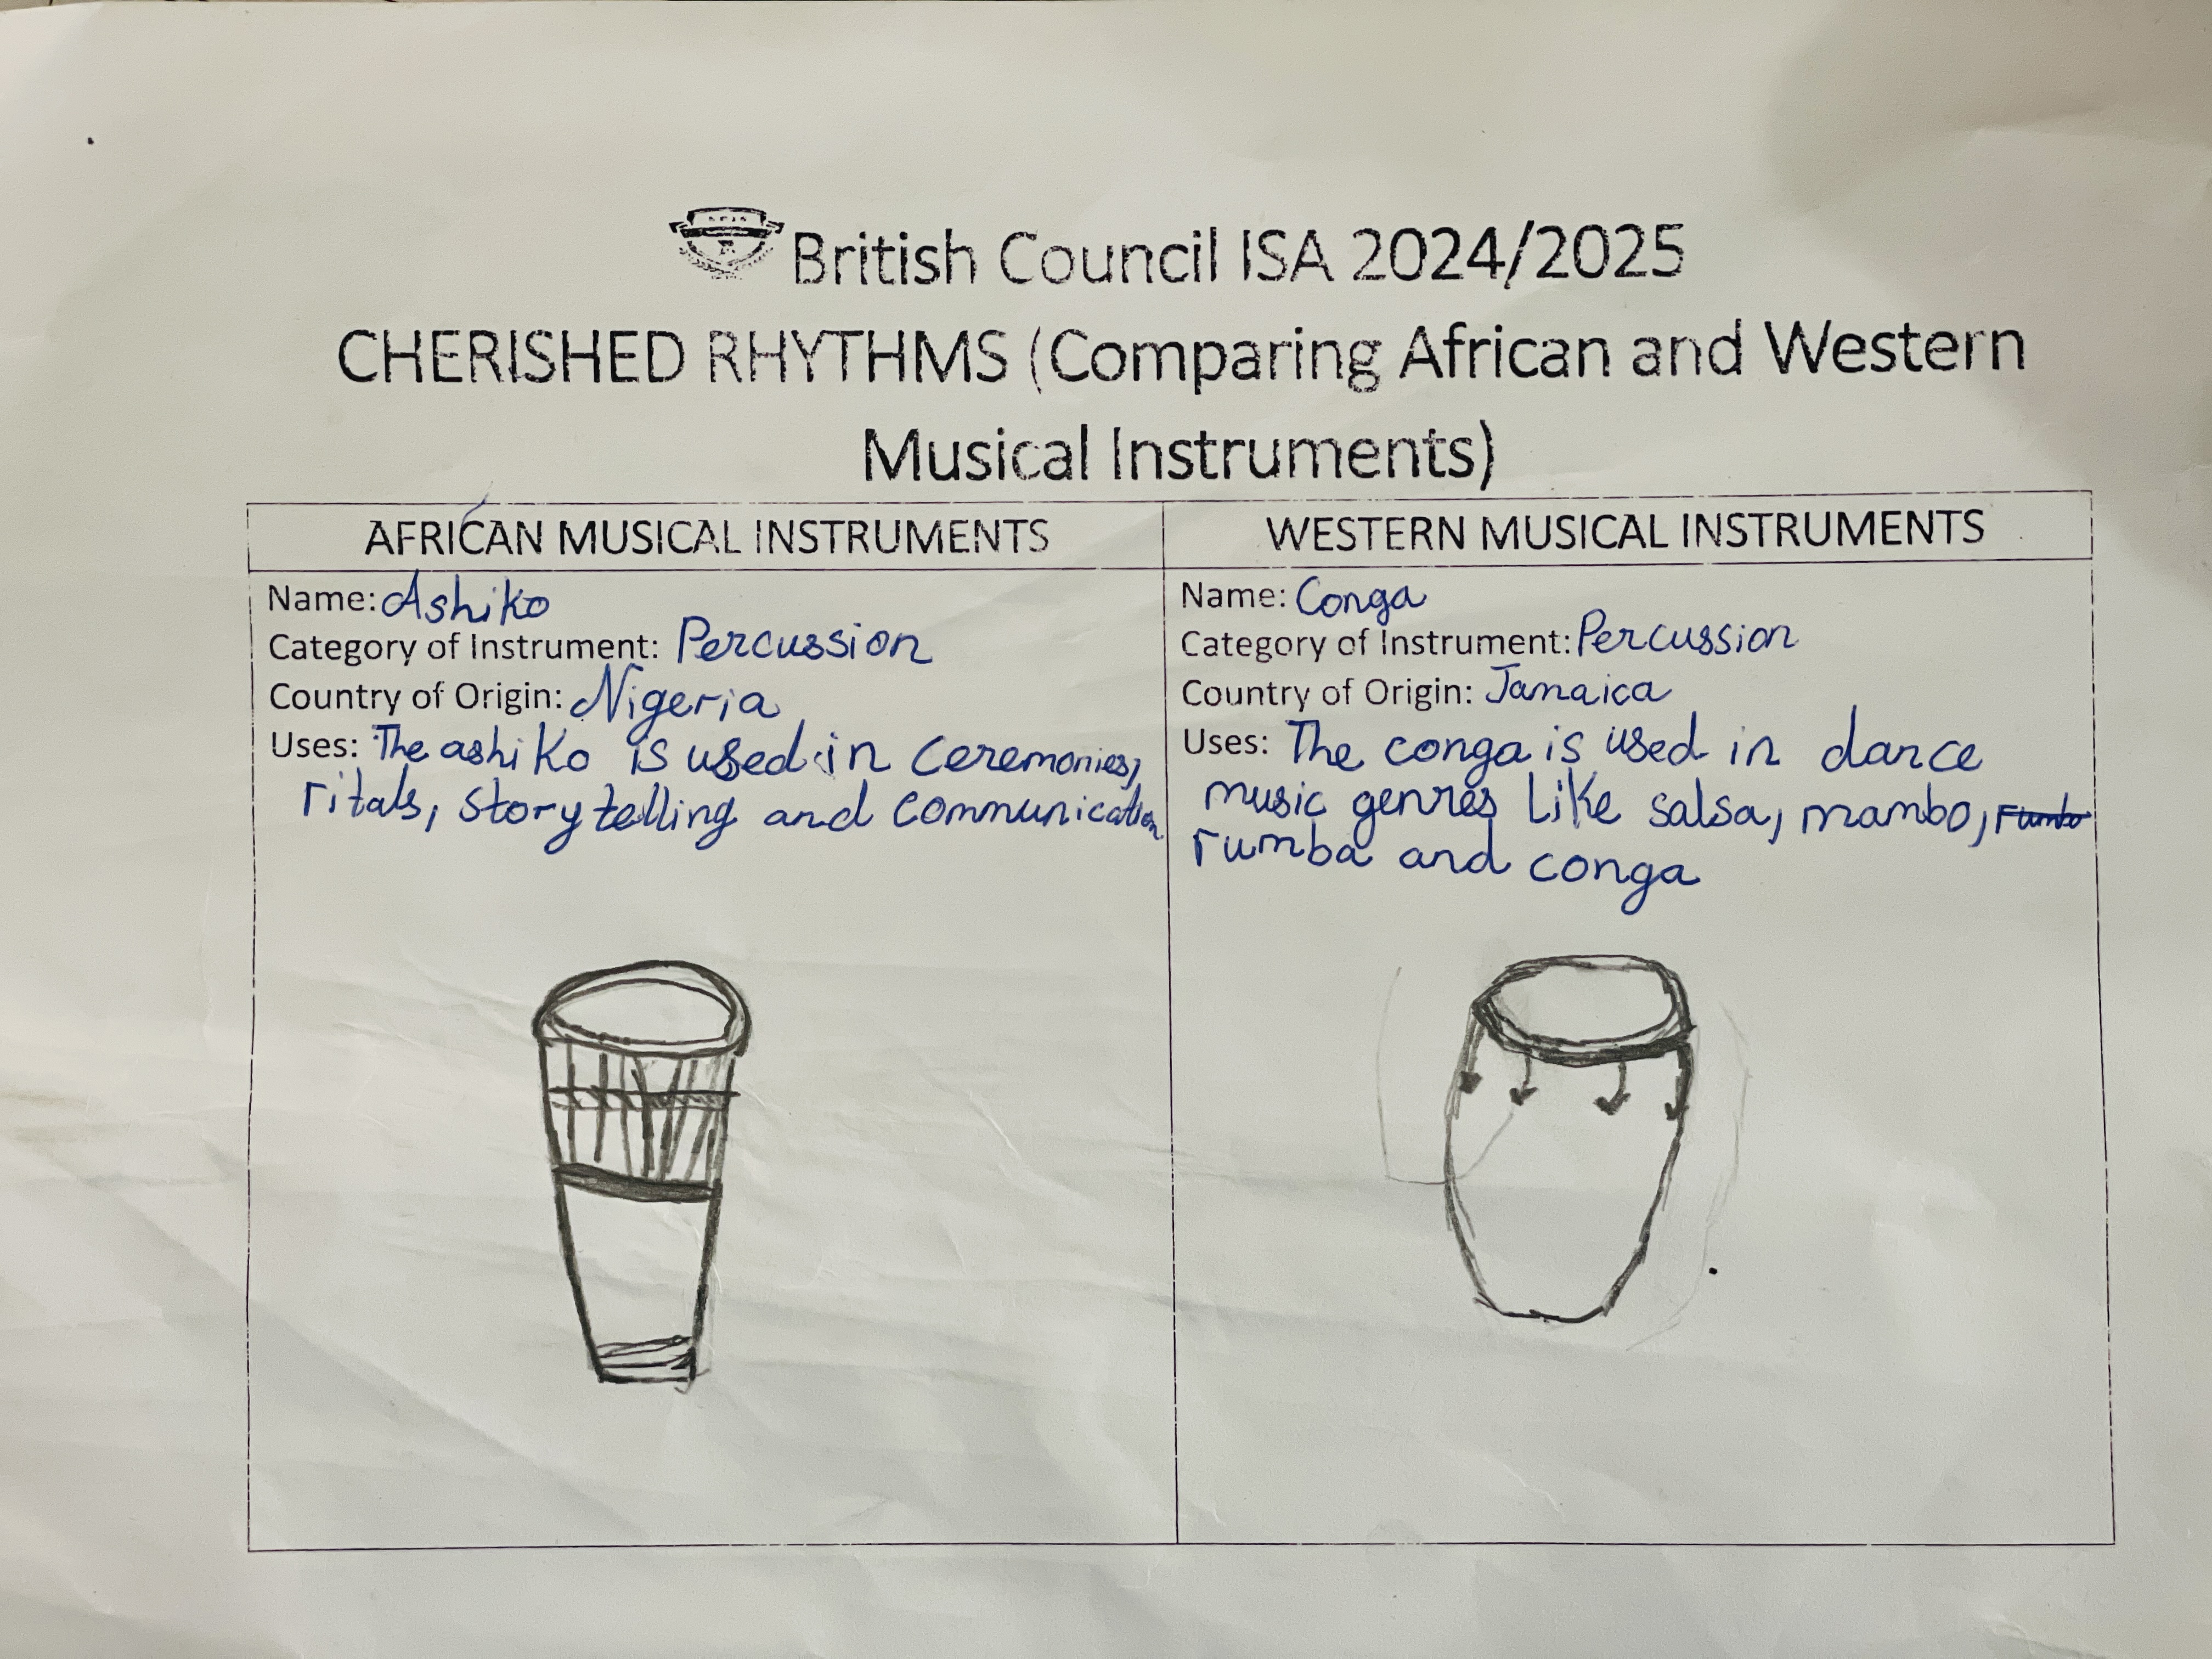 British Council ISA 2024/2025
CHERISHED RHYTHMS (Comparing African and Western
Musical Instruments)
AFRICAN MUSICAL INSTRUMENTS
Name: Ashiko
Category of Instrument: Percussion
Country of Origin: Nigeria
Uses: The ashiko is used in ceremonies,
ritals, storytelling and communication
WESTERN MUSICAL INSTRUMENTS
Name: Conga
Category of Instrument: Percussion
Country of Origin: Jamaica
Uses: The conga is used in dance
music genres like salsa, mambo,
rumba and conga